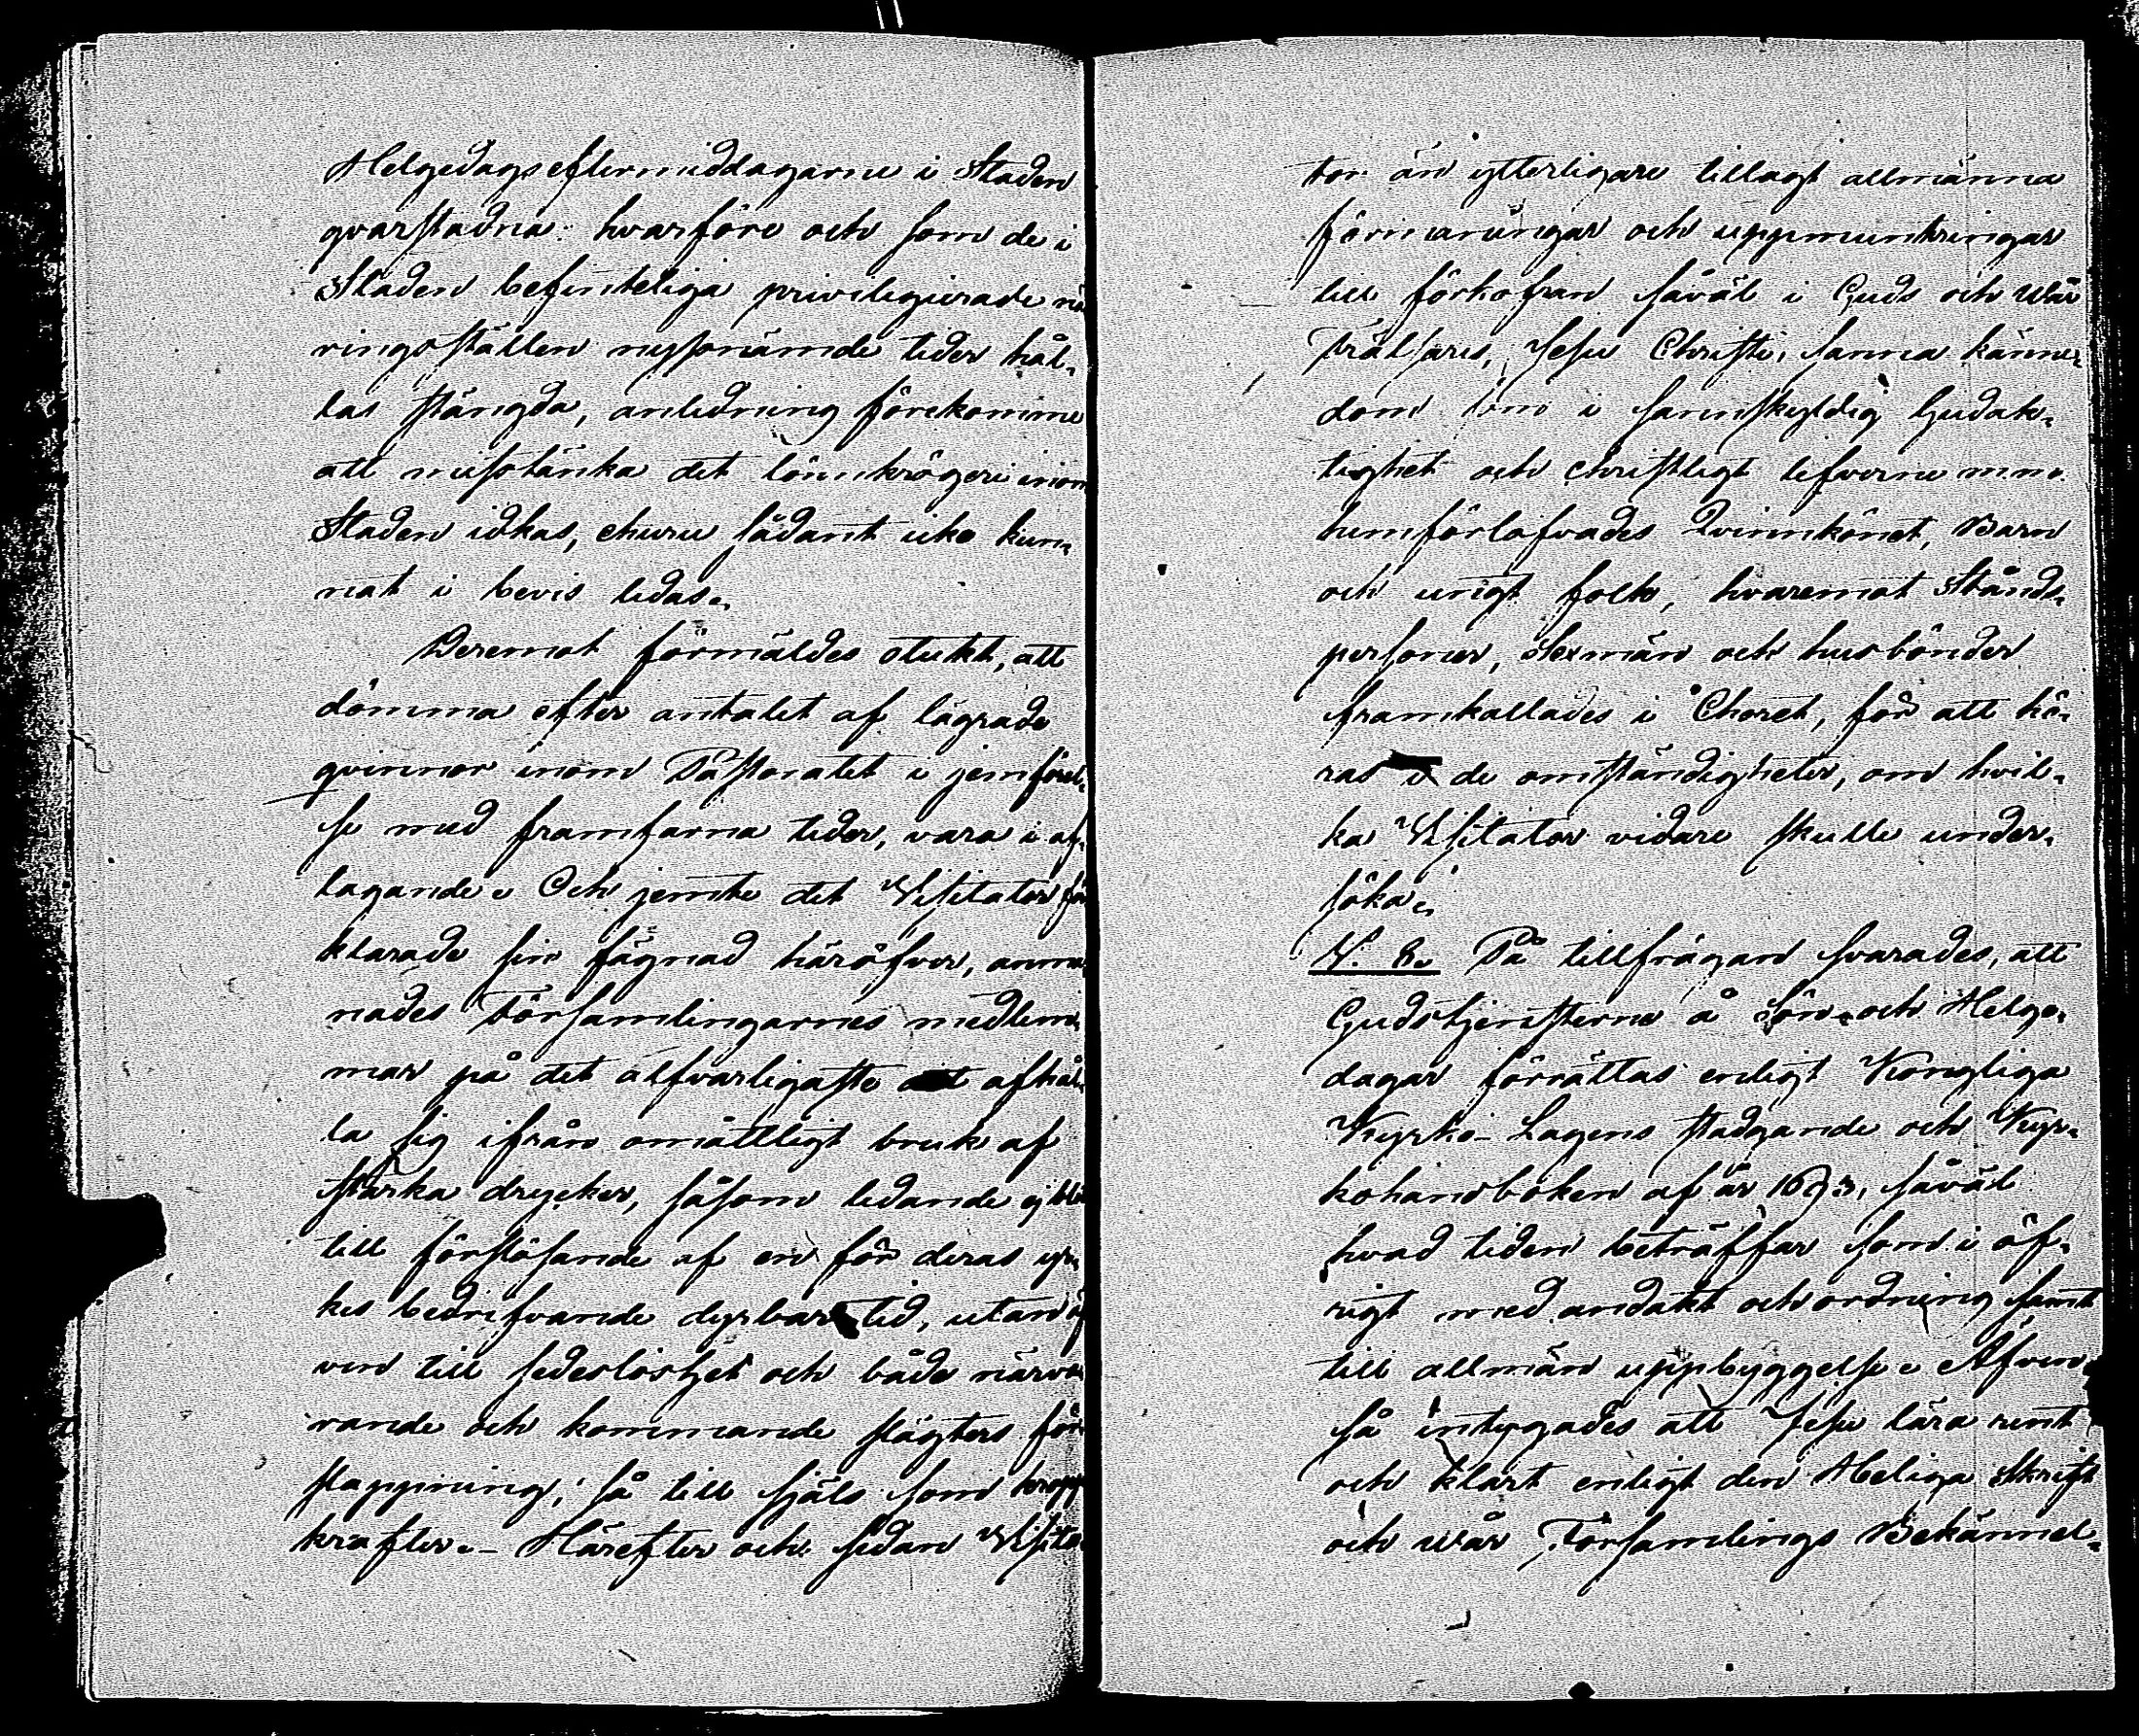 Helgedagseftermiddagarne i Staden
qvarstadna: hvarföre och som de i
Staden befinteliga privilegierade nä
ringsställen nyssnämde tider hål-
las stängda, anledning förekomme
att misstänka det lönnkrögeri inom
Staden idkas, churu sådant icke kun-
nat i bevis ledas.
Deremot förmäldes otukt, att
dömma efter antalet af lägrade
qvinnor inom Pastoratet i jemförel-
se med framfarna tider, vara i af-
tagande. Och jemte det Visitator för
klarade sin fägnad häröfver, anma-
nades Församlingarnes medlem-
mar på det alfvarligaste att afhål-
la sig ifrån omåttligt bruk af
starka drycker, såsom ledande ej blott
till förslösande af en för deras yr-
kes bedrifvande dyrbar tid, utan äf
ven till sedeslöshet och både närva-
rande och kommande slägters för
slappning, så till själs som kropps
krafter. - Härefter och sedan Visita-
tor än ytterligare tillagt allmänna
förmaningar och uppmuntringar
till förkofran såväl i Guds och wår
Frälsares, Jesu Christi, sanna känne-
dom som i sannskyldig Gudak-
tighet och christligt lefverne m.m.
hemförlofvades Qvinnkönet, Barn
och ungt folk, hvaremot Stånds-
personer, Sexmän och husbönder
framkallades i Choret, för att hö-
ras i de omständigheter, om hvil-
ka Visitator vidare skulle under-
söka.
N: 8. På tillfrågan svarades, att
Gudstjensterne å Sön- och Helge-
dagar förrättas enligt Kongliga
Kyrko-Lagens stadgande och Kyr-
kohandboken af år 1693, såväl
hvad tiden beträffar som i öf-
rigt med andakt och ordning samt
till allmän uppbyggelse. Äfven
så intygades att Jesu lära rent
och klart enligt den Heliga Skrift
och wår Församlings Bekännel-